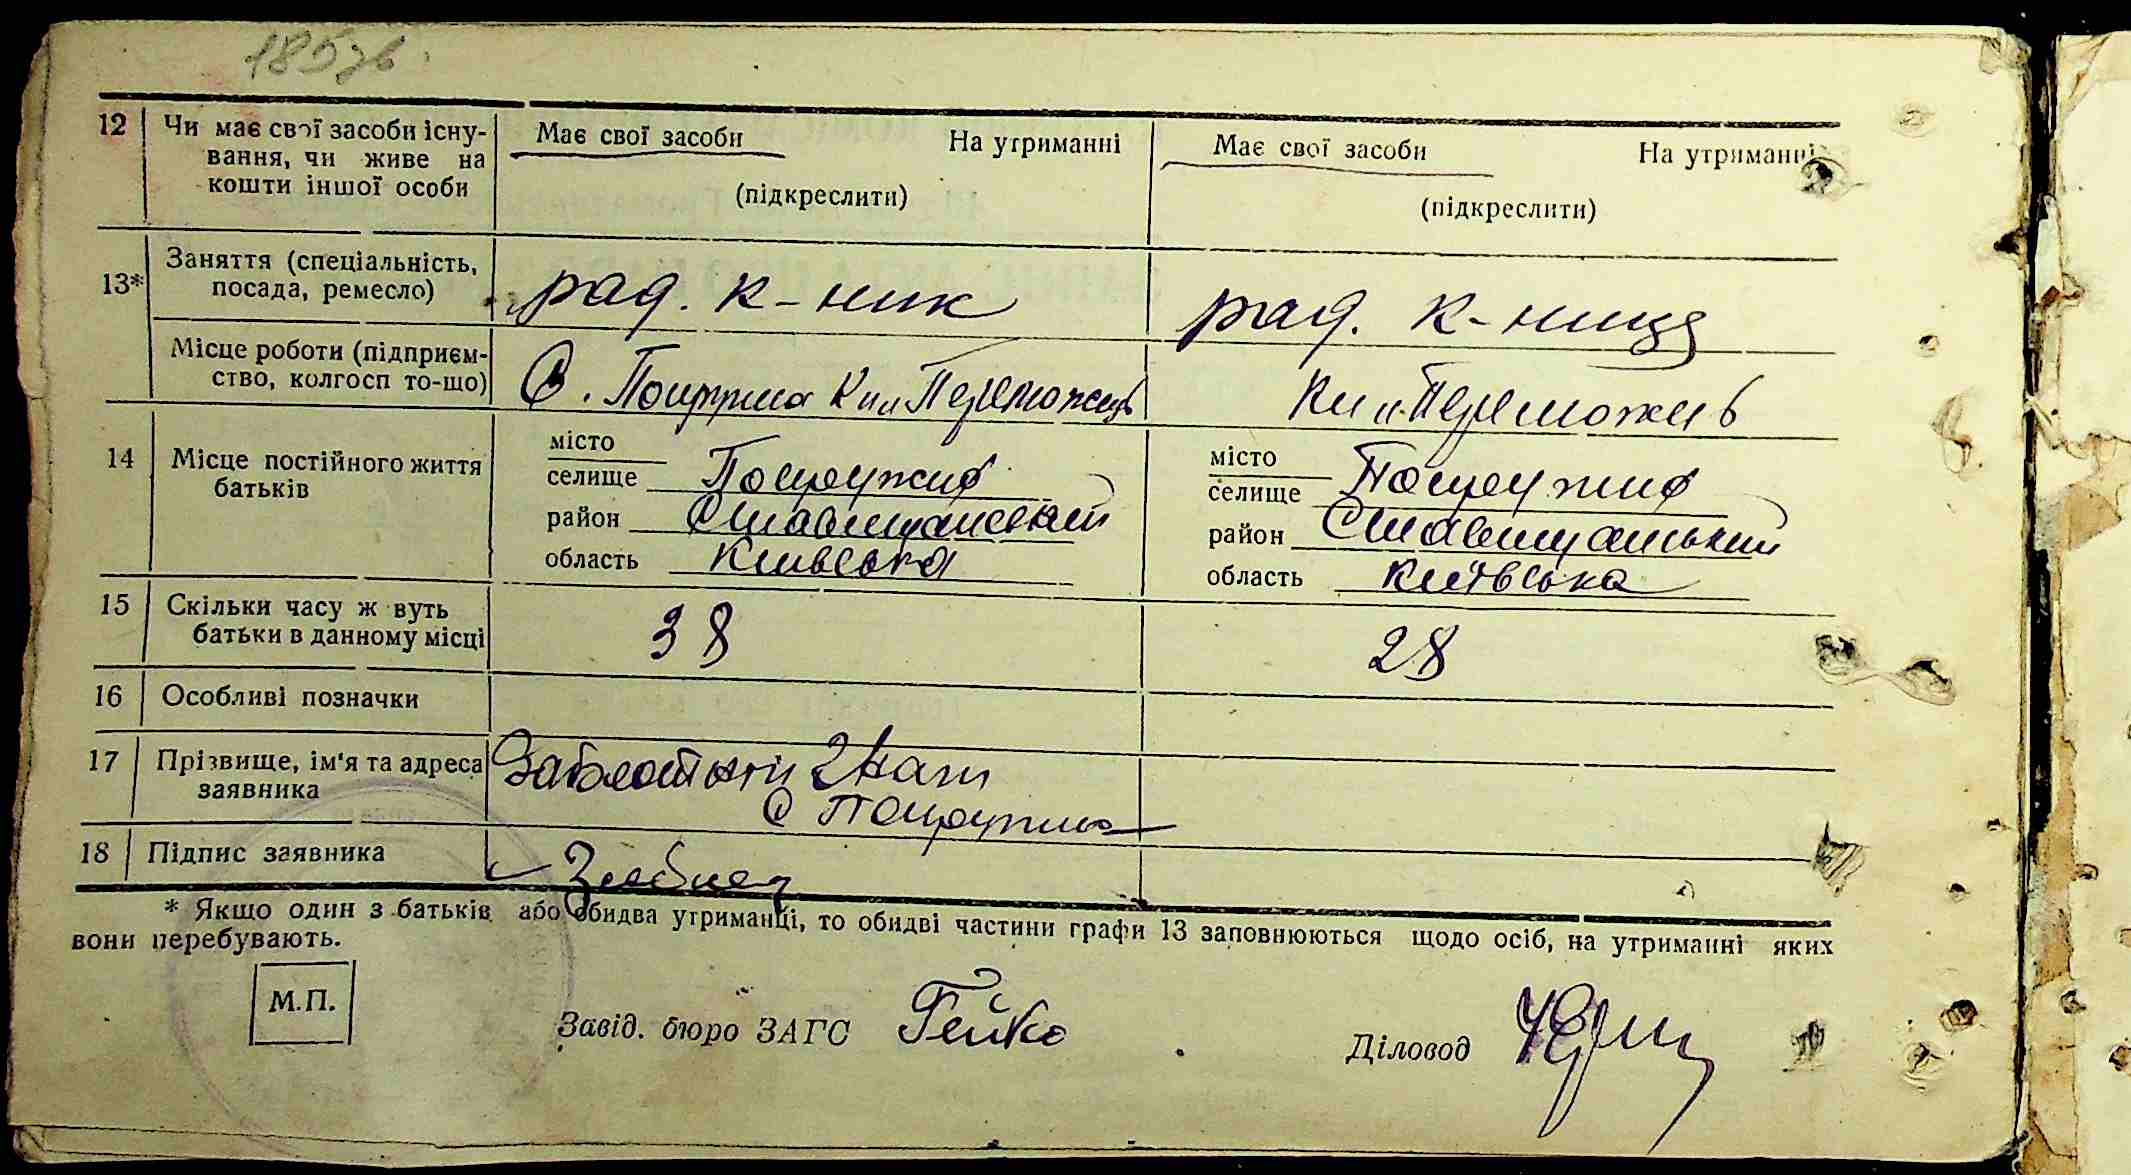 185зв.
12 Чи має свої засоби існування, чи живе на кошти іншої особи
Має свої засоби На утриманні
(підкреслити)
Має свої засоби На утриманні
(підкреслити)
13* Заняття (спеціальність, посада, ремесло)
рад. к-ник
рад. к-ниця
Місце роботи (підприєм-
ство, колгосп то-що)
С. Кіл Переможець
Кіл Переможець
14 Місце постійного життя
батьків
місто
селище
район Ставищанський
область Київська
місто
селище
район Ставищанський
область Київська
15 Скільки часу ж вуть
батьки в данному місці
38
28
16 Особливі позначки
17 Прізвище, ім'я та адреса
заявника
Заболотний Іван
с
18 Підпис заявника
* Якщо один з батьків або обидва утриманці, то обидві частини графи 13 заповнюються щодо осіб, на утриманні яких
вони перебувають.
М.П.
Завід. бюро ЗАГС Гейко
Діловод